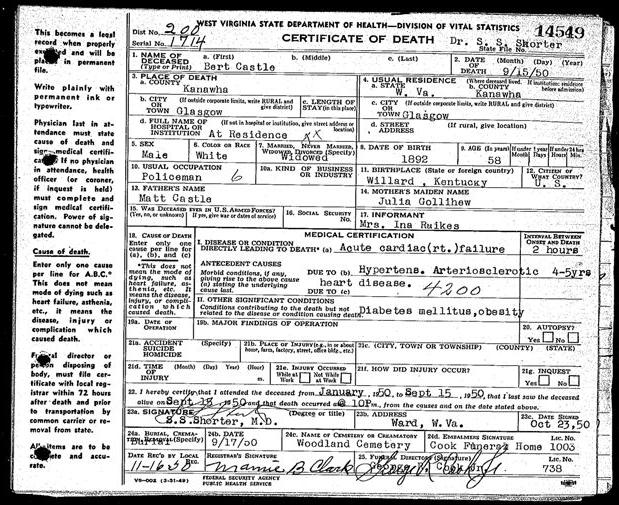 This becomes a legal
record when properly
and will be
placed in permanent
file.
Write plainly with
permanent ink or
typewriter.
Physician last in at-
tendance must state
cause of death and
sign medical certifi-
cate. If no physician
in attendance, health
officer (or coroner,
if inquest is held)
must complete and
sign medical certifi-
cation. Power of sig-
nature cannot be dele-
gated.
Cause of death.
Enter only one cause
per line for A.B.C. This
does not mean the
mode of dying such as
heart failure, asthenia,
etc., it means the
disease, injury or
complication which
caused death.
Funeral director or
person disposing of
body, must file cer-
tificate with local reg-
istrar within 72 hours
after death and prior
to transportation by
common carrier or re-
moval from state.
All items are to be
complete and accu-
rate.
WEST VIRGINIA STATE DEPARTMENT OF HEALTH—DIVISION OF VITAL STATISTICS
Dist No. 200
Serial No. 1714
CERTIFICATE OF DEATH
Dr. S. S. Shorter
State File No.
14549
1. NAME OF DECEASED (Type or Print)
a. (First) b. (Middle) c. (Last)
Bert Castle
2. DATE OF DEATH (Month) (Day) (Year)
9/15/50
3. PLACE OF DEATH
a. COUNTY
Kanawha
4. USUAL RESIDENCE (Where deceased lived. If institution: residence before admission).
a. STATE W. Va. b. COUNTY Kanawha
b. CITY OR TOWN (If outside corporate limits, write RURAL and give district)
Glasgow
c. LENGTH OF STAY (in this place)
c. CITY OR TOWN (If outside corporate limits, write RURAL and give district)
Glasgow
d. FULL NAME OF HOSPITAL OR INSTITUTION (If not in hospital or institution, give street address or location)
At Residence xx
d. STREET ADDRESS (If rural, give location)
5. SEX
Male
6. COLOR OR RACE
White
7. MARRIED, NEVER MARRIED, WIDOWED, DIVORCED (Specify)
Widowed
8. DATE OF BIRTH
1892
9. AGE (In Years) If under 1 year Months Days If under 24 hrs Hours Min.
58
10. USUAL OCCUPATION
Policeman 6
10a. KIND OF BUSINESS OR INDUSTRY
11. BIRTHPLACE (State or foreign country)
Willard, Kentucky
12. CITIZEN OF WHAT COUNTRY?
U. S.
13. FATHER'S NAME
Matt Castle
14. MOTHER'S MAIDEN NAME
Julia Gollihew
15. WAS DECEASED EVER IN U.S. ARMED FORCES? (Yes, no, or unknown) If yes, give war or dates of service)
16. SOCIAL SECURITY No.
17. INFORMANT
Mrs. Ina Raikes
MEDICAL CERTIFICATION
INTERVAL BETWEEN ONSET AND DEATH
18. CAUSE OF DEATH Enter only one cause per line for (a), (b), and (c)
I. DISEASE OR CONDITION DIRECTLY LEADING TO DEATH* (a) Acute cardiac(rt.)failure
2 hours
*This does not mean the mode of dying, such as heart failure, asthenia, etc. It means the disease, injury, or complication which caused death.
ANTECEDENT CAUSES
Morbid conditions, if any, giving rise to the above cause (a) stating the underlying cause last.
DUE TO (b) Hypertens. Arteriosclerotic 4-5yrs
heart disease. 4200
DUE TO (c)
II. OTHER SIGNIFICANT CONDITIONS
Conditions contributing to the death but not related to the disease or condition causing death.
Diabetes mellitus,obesity
19a. DATE OF OPERATION
19b. MAJOR FINDINGS OF OPERATION
20. AUTOPSY?
Yes No
21a. ACCIDENT SUICIDE HOMICIDE (Specify)
21b. PLACE OF INJURY (e.g., in or about home, farm, factory, street, office bldg., etc.)
21c. (CITY, TOWN, OR TOWNSHIP) (COUNTY) (STATE)
21d. TIME OF INJURY (Month) (Day) (Year) (Hour) m.
21e. INJURY OCCURRED
While at Work Not While at Work
21f. HOW DID INJURY OCCUR?
21g. INQUEST
Yes No
22. I hereby certify that I attended the deceased from January, 1950, to Sept 15, 1950, that I last saw the deceased
alive on Sept 15, 1950 and that death occurred @ 10P m., from the causes and on the date stated above.
23a. SIGNATURE (Degree or title)
S.S.Shorter, M.D.
23b. ADDRESS
Ward, W.Va.
23c. DATE SIGNED
Oct 23,50
24a. BURIAL, CREMATION, REMOVAL (Specify)
Burial
24b. DATE
9/17/50
24c. NAME OF CEMETERY OR CREMATORY
Woodland Cemetery
24d. EMBALMERS SIGNATURE
Cook Funeral Home
LIC. No.
1003
DATE REC'D BY LOCAL REG.
11-16-50
REGISTRAR'S SIGNATURE
Mannie B Clark
25. FUNERAL DIRECTOR (Signature)
LIC. No.
738
VS-002 (3-31-49)
FEDERAL SECURITY AGENCY
PUBLIC HEALTH SERVICE